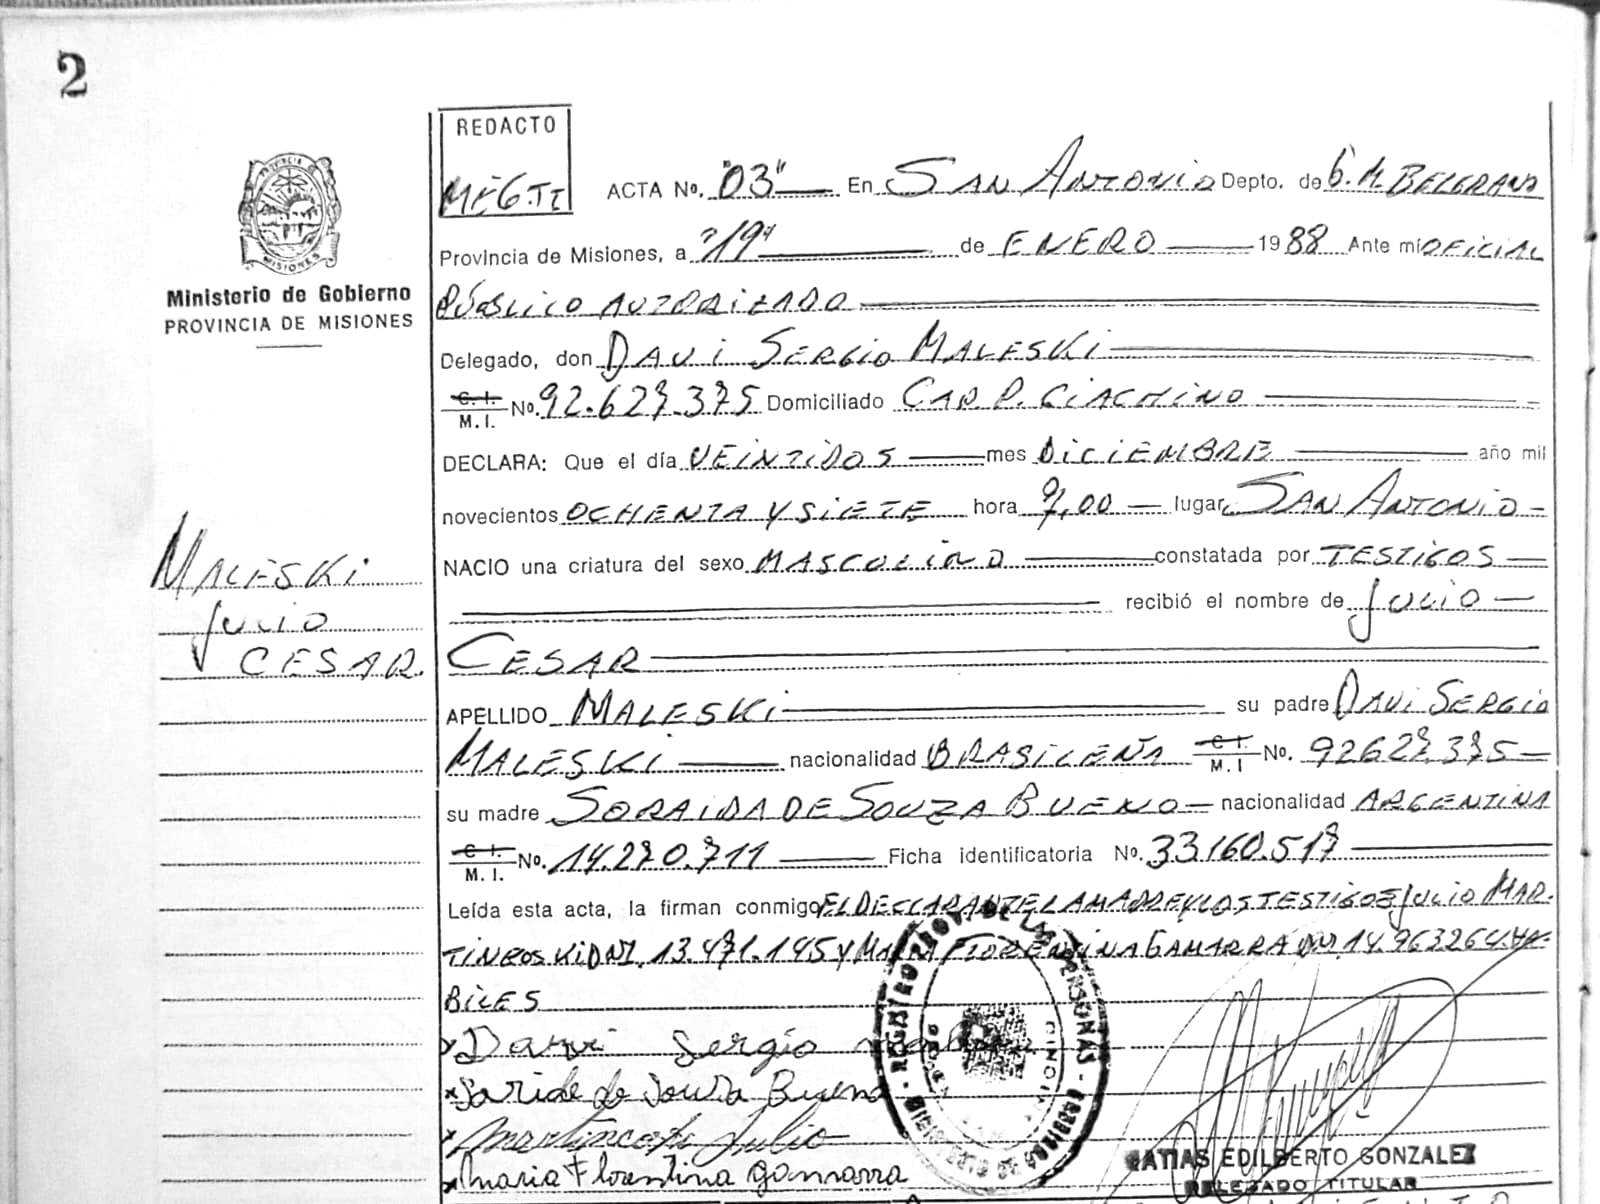 2
REDACTO
MEGTI
ACTA No. "03" En SAN ANTONIO Depto. de G. M. BELGRANO
Provincia de Misiones, a "19" de ENERO 1988 Ante mi OFICIAL
PÚBLICO AUTORIZADO
PROVINCIA
MISIONES
Ministerio de Gobierno
PROVINCIA DE MISIONES
Delegado, don DAVI SERGIO MALESKI
C. I.
M. I. No. 92.627.375 Domiciliado CAP. P. GIACHINO
DECLARA: Que el día VEINTIDOS mes DICIEMBRE año mil
novecientos OCHENTA Y SIETE hora 7,00 lugar SAN ANTONIO
NACIO una criatura del sexo MASCULINO constatada por TESTIGOS
recibió el nombre de JULIO
CESAR
MALESKI
JULIO
CESAR.
APELLIDO MALESKI su padre DAVI SERGIO
MALESKI nacionalidad BRASILEÑA C. I. M. I No. 92627.375
su madre SORAIDA DE SOUZA BUENO nacionalidad ARGENTINA
C. I.
M. I. No. 14.270.711 Ficha identificatoria No. 33160.517
Leída esta acta, la firman conmigo EL DECLARANTE LA MADRE Y LOS TESTIGOS JULIO MAR-
TINCOSKI DNI. 13.471.145 Y MARIA FLORENTINA GAMARRA DNI. 14.963264. HA-
BILES
x Davi Sergio
x Soraide de Souza Bueno
x Martincoski Julio
x Maria Florentina Gamarra
REGISTRO PROV. DE LAS PERSONAS
MATIAS EDILBERTO GONZALEZ
DELEGADO TITULAR